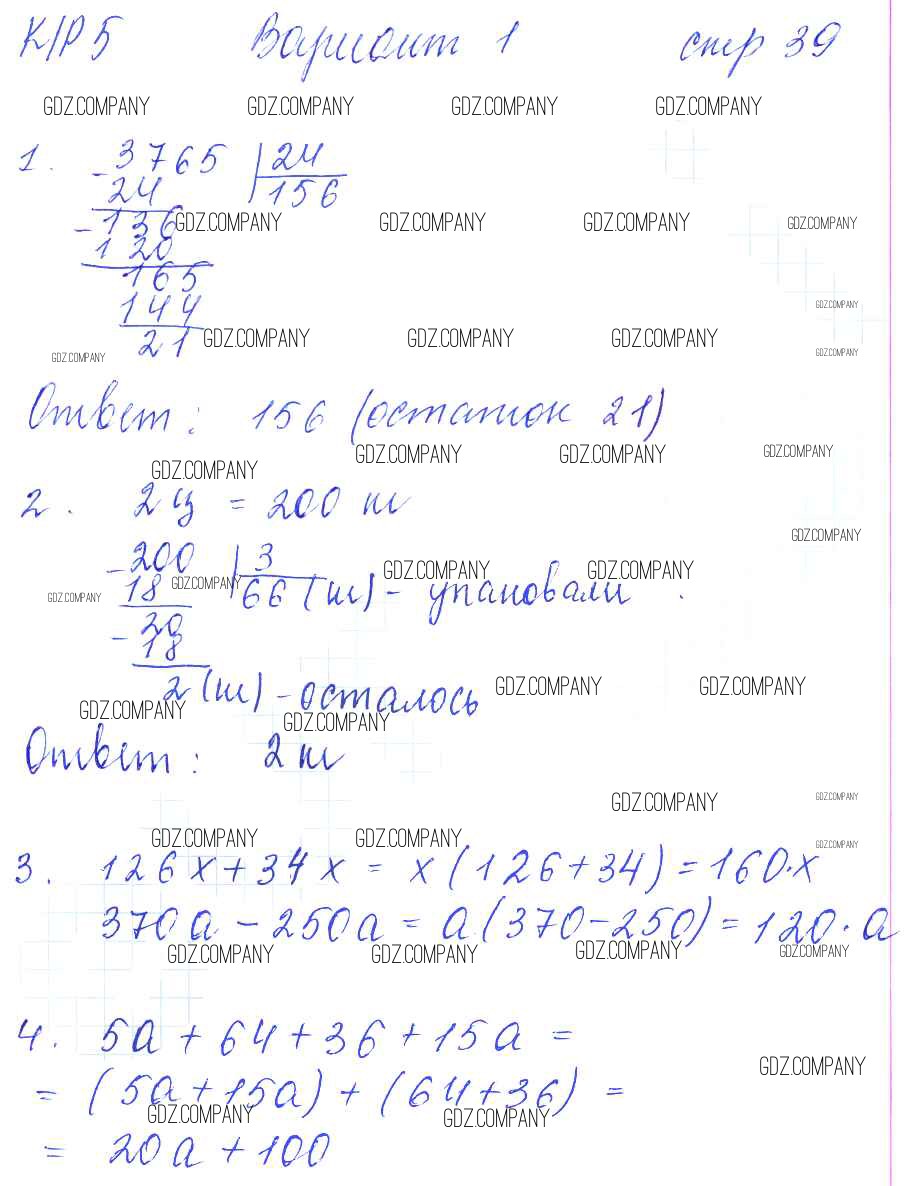 К/Р 5 Вариант 1 стр 39
GDZ.COMPANY GDZ.COMPANY GDZ.COMPANY GDZ.COMPANY
1. - 3765 | 24
24 156
- 136 GDZ.COMPANY GDZ.COMPANY GDZ.COMPANY GDZ.COMPANY
120
165
GDZ.COMPANY
144
GDZ.COMPANY GDZ.COMPANY GDZ.COMPANY
21
GDZ.COMPANY GDZ.COMPANY
Ответ: 156 (остаток 21)
GDZ.COMPANY GDZ.COMPANY GDZ.COMPANY GDZ.COMPANY
2. 2 ц = 200 кг
GDZ.COMPANY
- 200 | 3
GDZ.COMPANY GDZ.COMPANY GDZ.COMPANY
18 66 (кг) - упаковали.
GDZ.COMPANY
- 20
18
2 (кг) - осталось GDZ.COMPANY GDZ.COMPANY
GDZ.COMPANY GDZ.COMPANY
Ответ: 2 кг
GDZ.COMPANY GDZ.COMPANY
GDZ.COMPANY GDZ.COMPANY GDZ.COMPANY
3. 126 x + 34 x = x (126 + 34) = 160·x
370 a - 250 a = a (370 - 250) = 120·a
GDZ.COMPANY GDZ.COMPANY GDZ.COMPANY GDZ.COMPANY
4. 5a + 64 + 36 + 15a =
GDZ.COMPANY
= (5a + 15a) + (64 + 36) =
GDZ.COMPANY GDZ.COMPANY
= 20a + 100